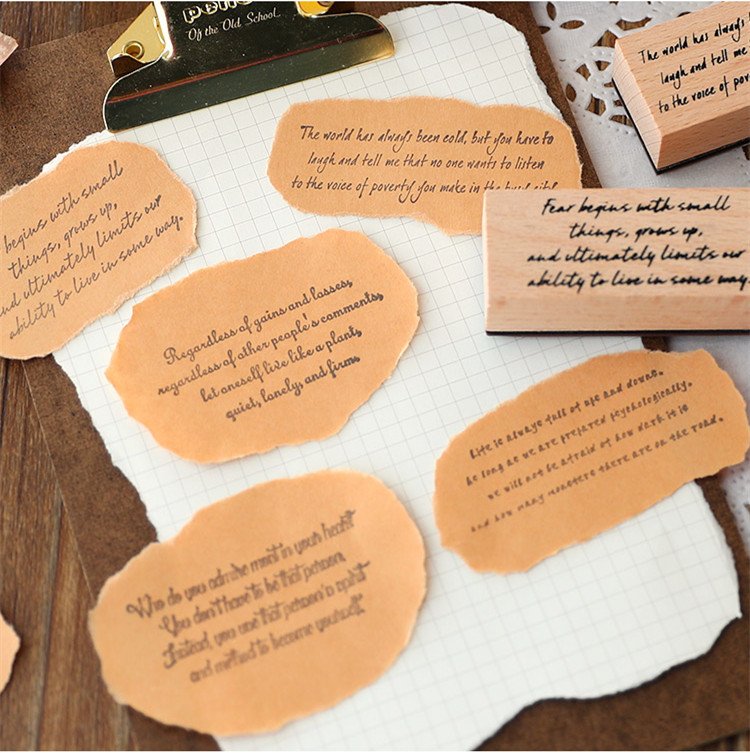 Of the Old School...
The world has always
laugh and tell me
to the voice of
The world has always been cold, but you have to
laugh and tell me that no one wants to listen
to the voice of poverty you make in the
begins with small
things, grows up,
and ultimately limits our
ability to live in some way.
Fear begins with small
things, grows up,
and ultimately limits our
ability to live in some way.
Regardless of gains and losses,
regardless of other people's comments,
let oneself live like a plant,
quiet, lonely, and firm.
Life is always full of ups and downs.
As long as we are prepared psychologically.
we will not be afraid of how dark it is
and how many monsters there are on the road.
Who do you admire most in your heart
You don't have to be that person.
Instead, you use that person's spirit
and method to become yourself.